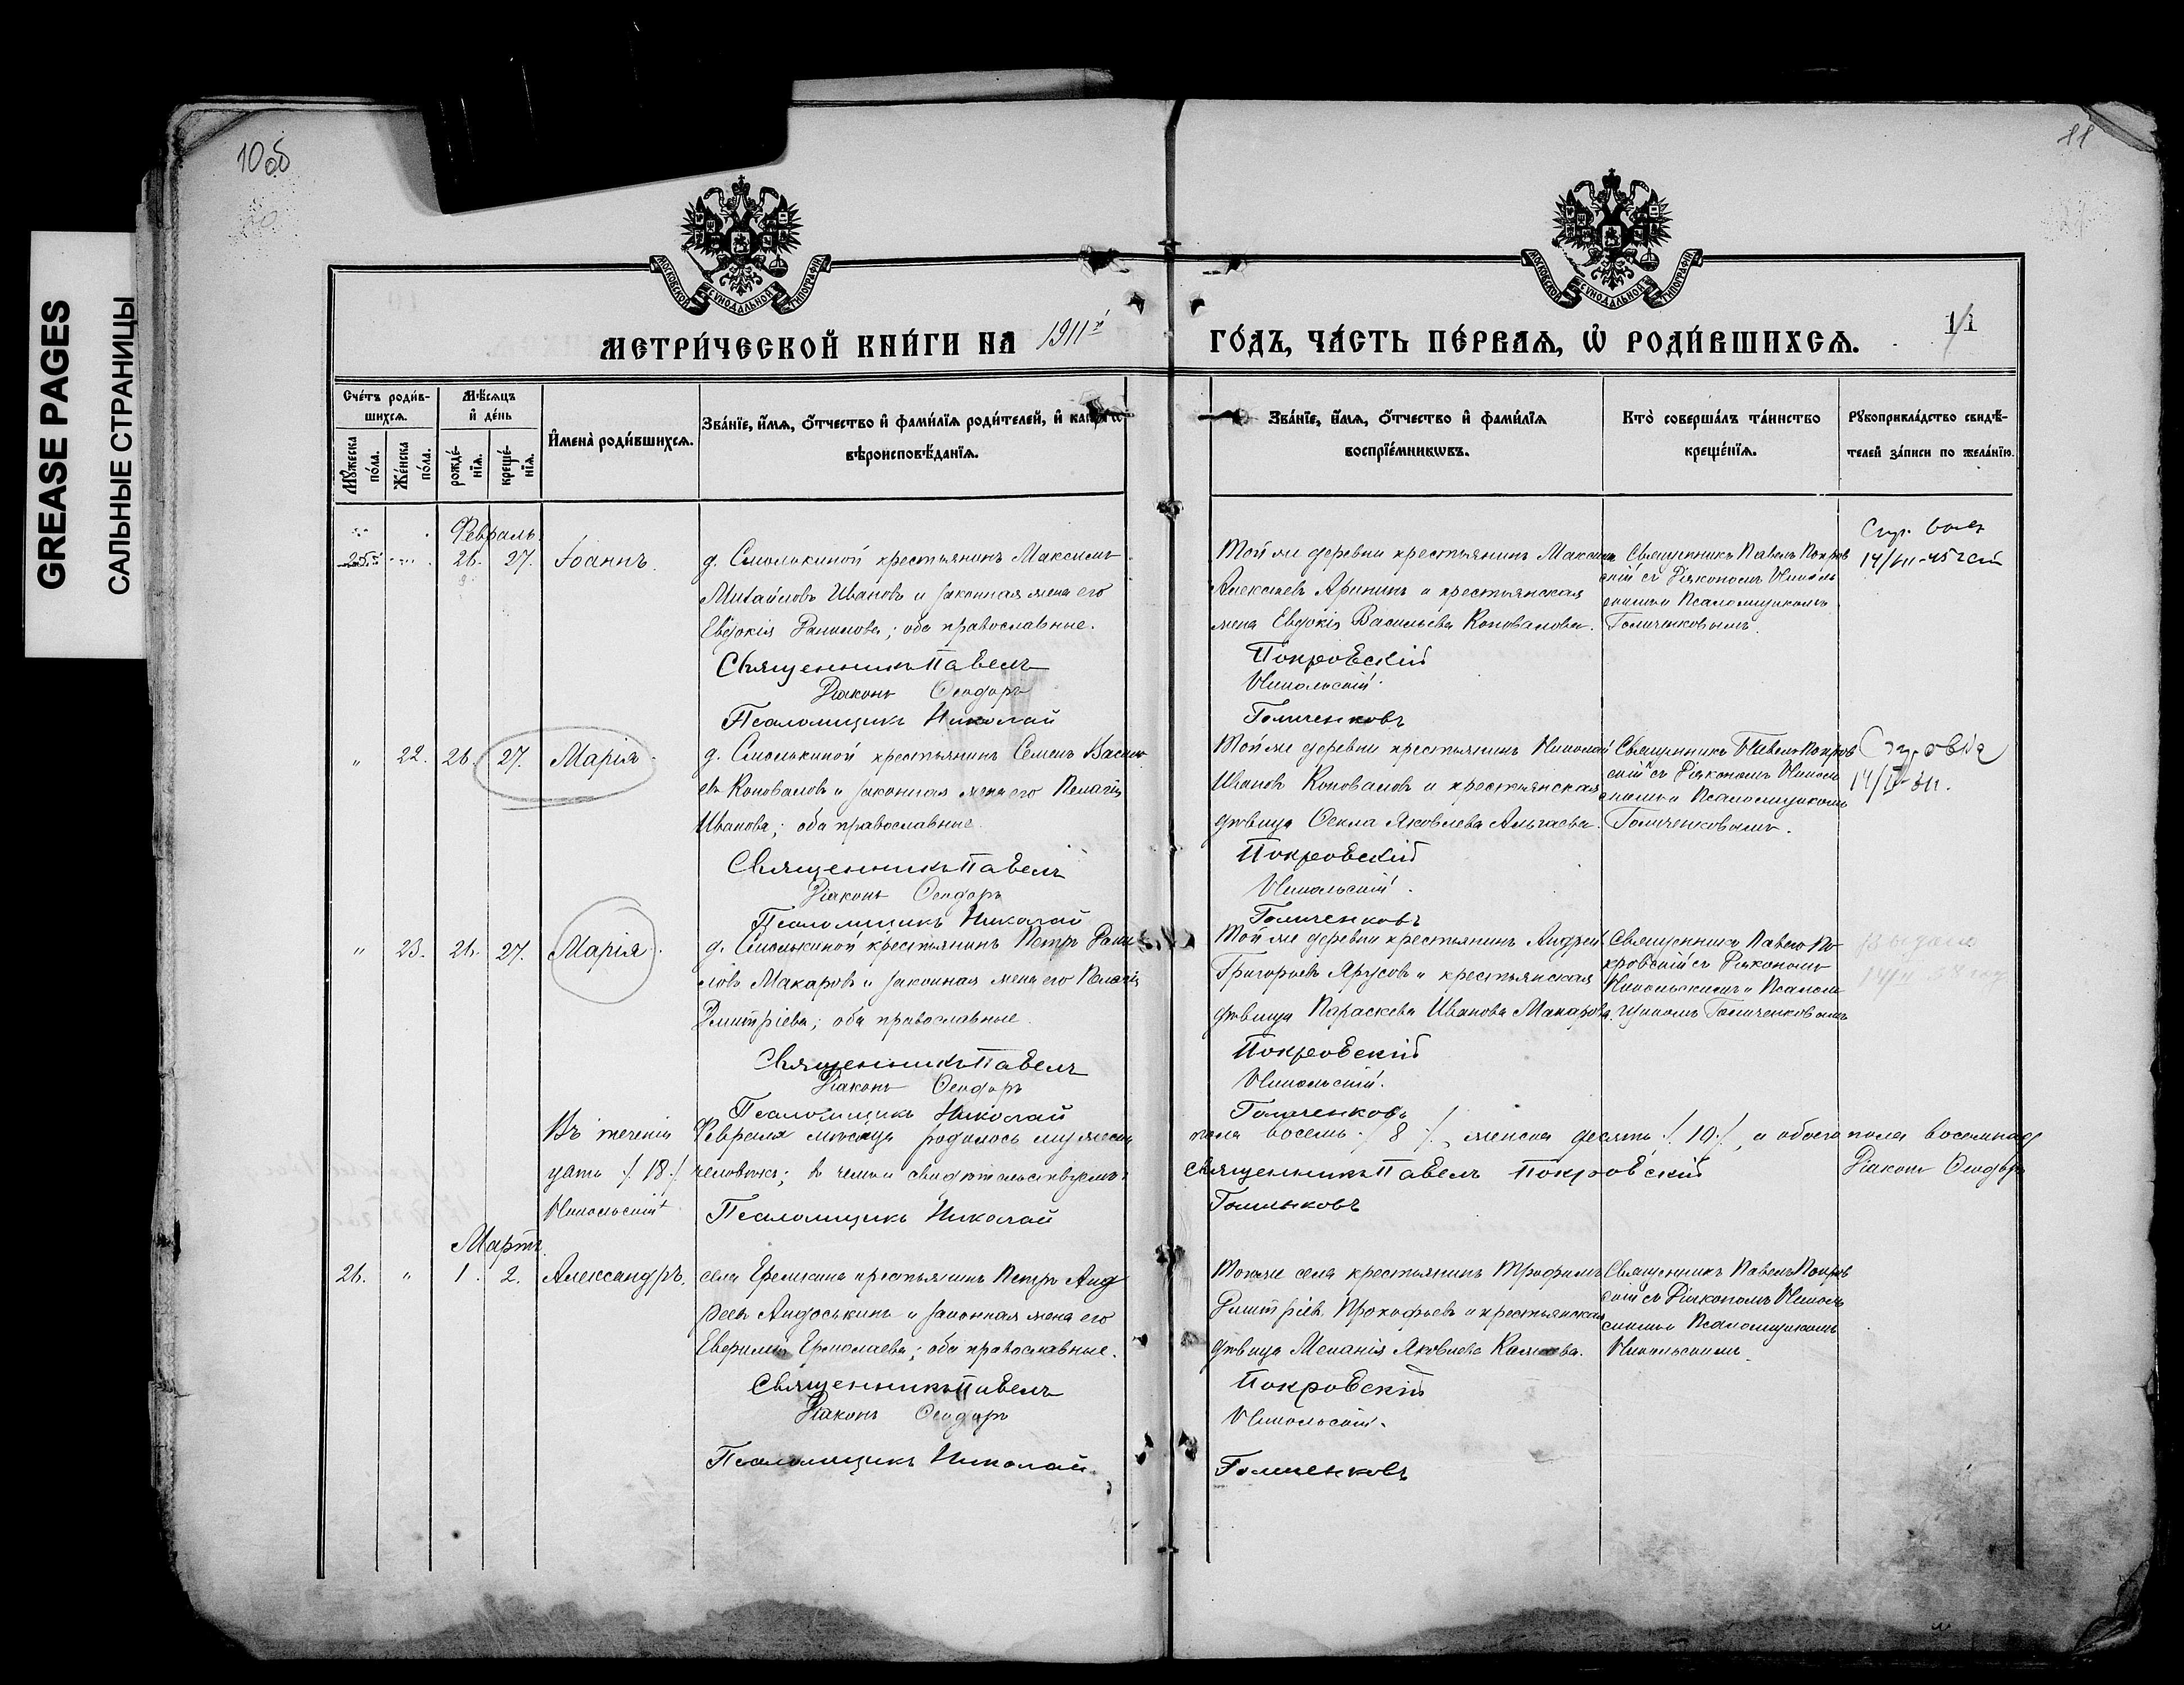 10об
11
GREASE PAGES
САЛЬНЫЕ СТРАНИЦЫ
МОСКОВСКОЙ СѴНОДАЛЬНОЙ ТИПОГРАФІИ
МОСКОВСКОЙ СѴНОДАЛЬНОЙ ТИПОГРАФІИ
МЕТРИ́ЧЕСКОЙ КНИ́ГИ НА 1911й ГО́ДЪ, ЧА́СТЬ ПЕ́РВАѦ, Ѡ҆ РОДИ́ВШИХСѦ. 11
Сче́тъ роди́в-
шихсѧ.
Мꙋ́жеска по́ла.
Же́нска по́ла.
Мѣ́сѧцъ
и҆ де́нь
рожде́-
нїѧ.
креще́-
нїѧ.
И҆мена̀ роди́вшихсѧ.
Зва́нїе, и҆́мѧ, ѻ҆́тчество и҆ фами́лїѧ роди́телей, и҆
вѣроисповѣ́данїѧ.
Зва́нїе, и҆́мѧ, ѻ҆́тчество и҆ фами́лїѧ
воспрїе́мникѡвъ.
Кто̀ соверша́лъ та́инство
креще́нїѧ.
Рꙋкоприкла́дство свидѣ́-
телей за́писи по жела́нїю.
Февраль.
25. 26. 27. Іоаннъ.
д. Смолькиной крестьянинъ Максимъ
Михайловъ Ивановъ и законная жена его
Евдокія Данилова; оба православные.
Священникъ Павелъ
Діаконъ Ѳеодоръ
Псаломщикъ Николай
Той же деревни крестьянинъ Максимъ
Алексѣевъ Аринин и крестьянская
жена Евдокія Васильева Коновалова.
Покровскій
Никольскій.
Голиченковъ
Священникъ Павелъ Покров
скій съ Діакономъ Николь
скимъ и Псаломщикомъ
Голиченковымъ.
" 22. 26. 27. Марія.
д. Смолькиной крестьянинъ Семенъ Василь
евъ Коноваловъ и законная жена его Пелагія
Иванова; оба православные.
Священникъ Павелъ
Діаконъ Ѳеодоръ
Псаломщикъ Николай
Той же деревни крестьянинъ Николай
Ивановъ Коноваловъ и крестьянская
дѣвица Ѳекла Яковлева
Покровскій
Никольскій.
Голиченковъ
Священникъ Павелъ Покров
скій съ Діакономъ Николь
скимъ и Псаломщикомъ
Голиченковымъ.
" 23. 26. 27. Марія.
д. Смолькиной крестьянинъ Петръ Дани
ловъ Макаровъ и законная жена его Пелагія
Дмитріева; оба православные.
Священникъ Павелъ
Діаконъ Ѳеодоръ
Псаломщикъ Николай
Той же деревни крестьянинъ Андрей
Григорьевъ Ярусовъ и крестьянская
дѣвица Параскева Иванова Макарова.
Покровскій
Никольскій.
Голиченковъ
Священникъ Павелъ По-
кровскій съ Діакономъ
Никольскимъ и Псалом
щикомъ Голиченковымъ
Въ теченіи Февраля мѣсяца родилось мужеска пола восемь /. 8 ./, женска десять /. 10 ./, а обоего пола восемнад
цать /. 18 ./ человѣкъ; въ чемъ и свидѣтельствуемъ: Священникъ Павелъ Покровскій Діаконъ Ѳеодоръ
Никольскій Псаломщикъ Николай Голиченковъ
Мартъ.
26. " 1. 2. Александръ.
села крестьянинъ Петръ Анд
реевъ Андоськинъ и законная жена его
Ермолаева; оба православные.
Священникъ Павелъ
Діаконъ Ѳеодоръ
Псаломщикъ Николай
Того же села крестьянинъ Трофимъ
Дмитріевъ Прокофьевъ и крестьянская
дѣвица Меланія Яковлева
Покровскій
Никольскій.
Голиченковъ
Священникъ Павелъ Покров
скій съ Діакономъ Николь
скимъ и Псаломщикомъ
Никольскимъ.